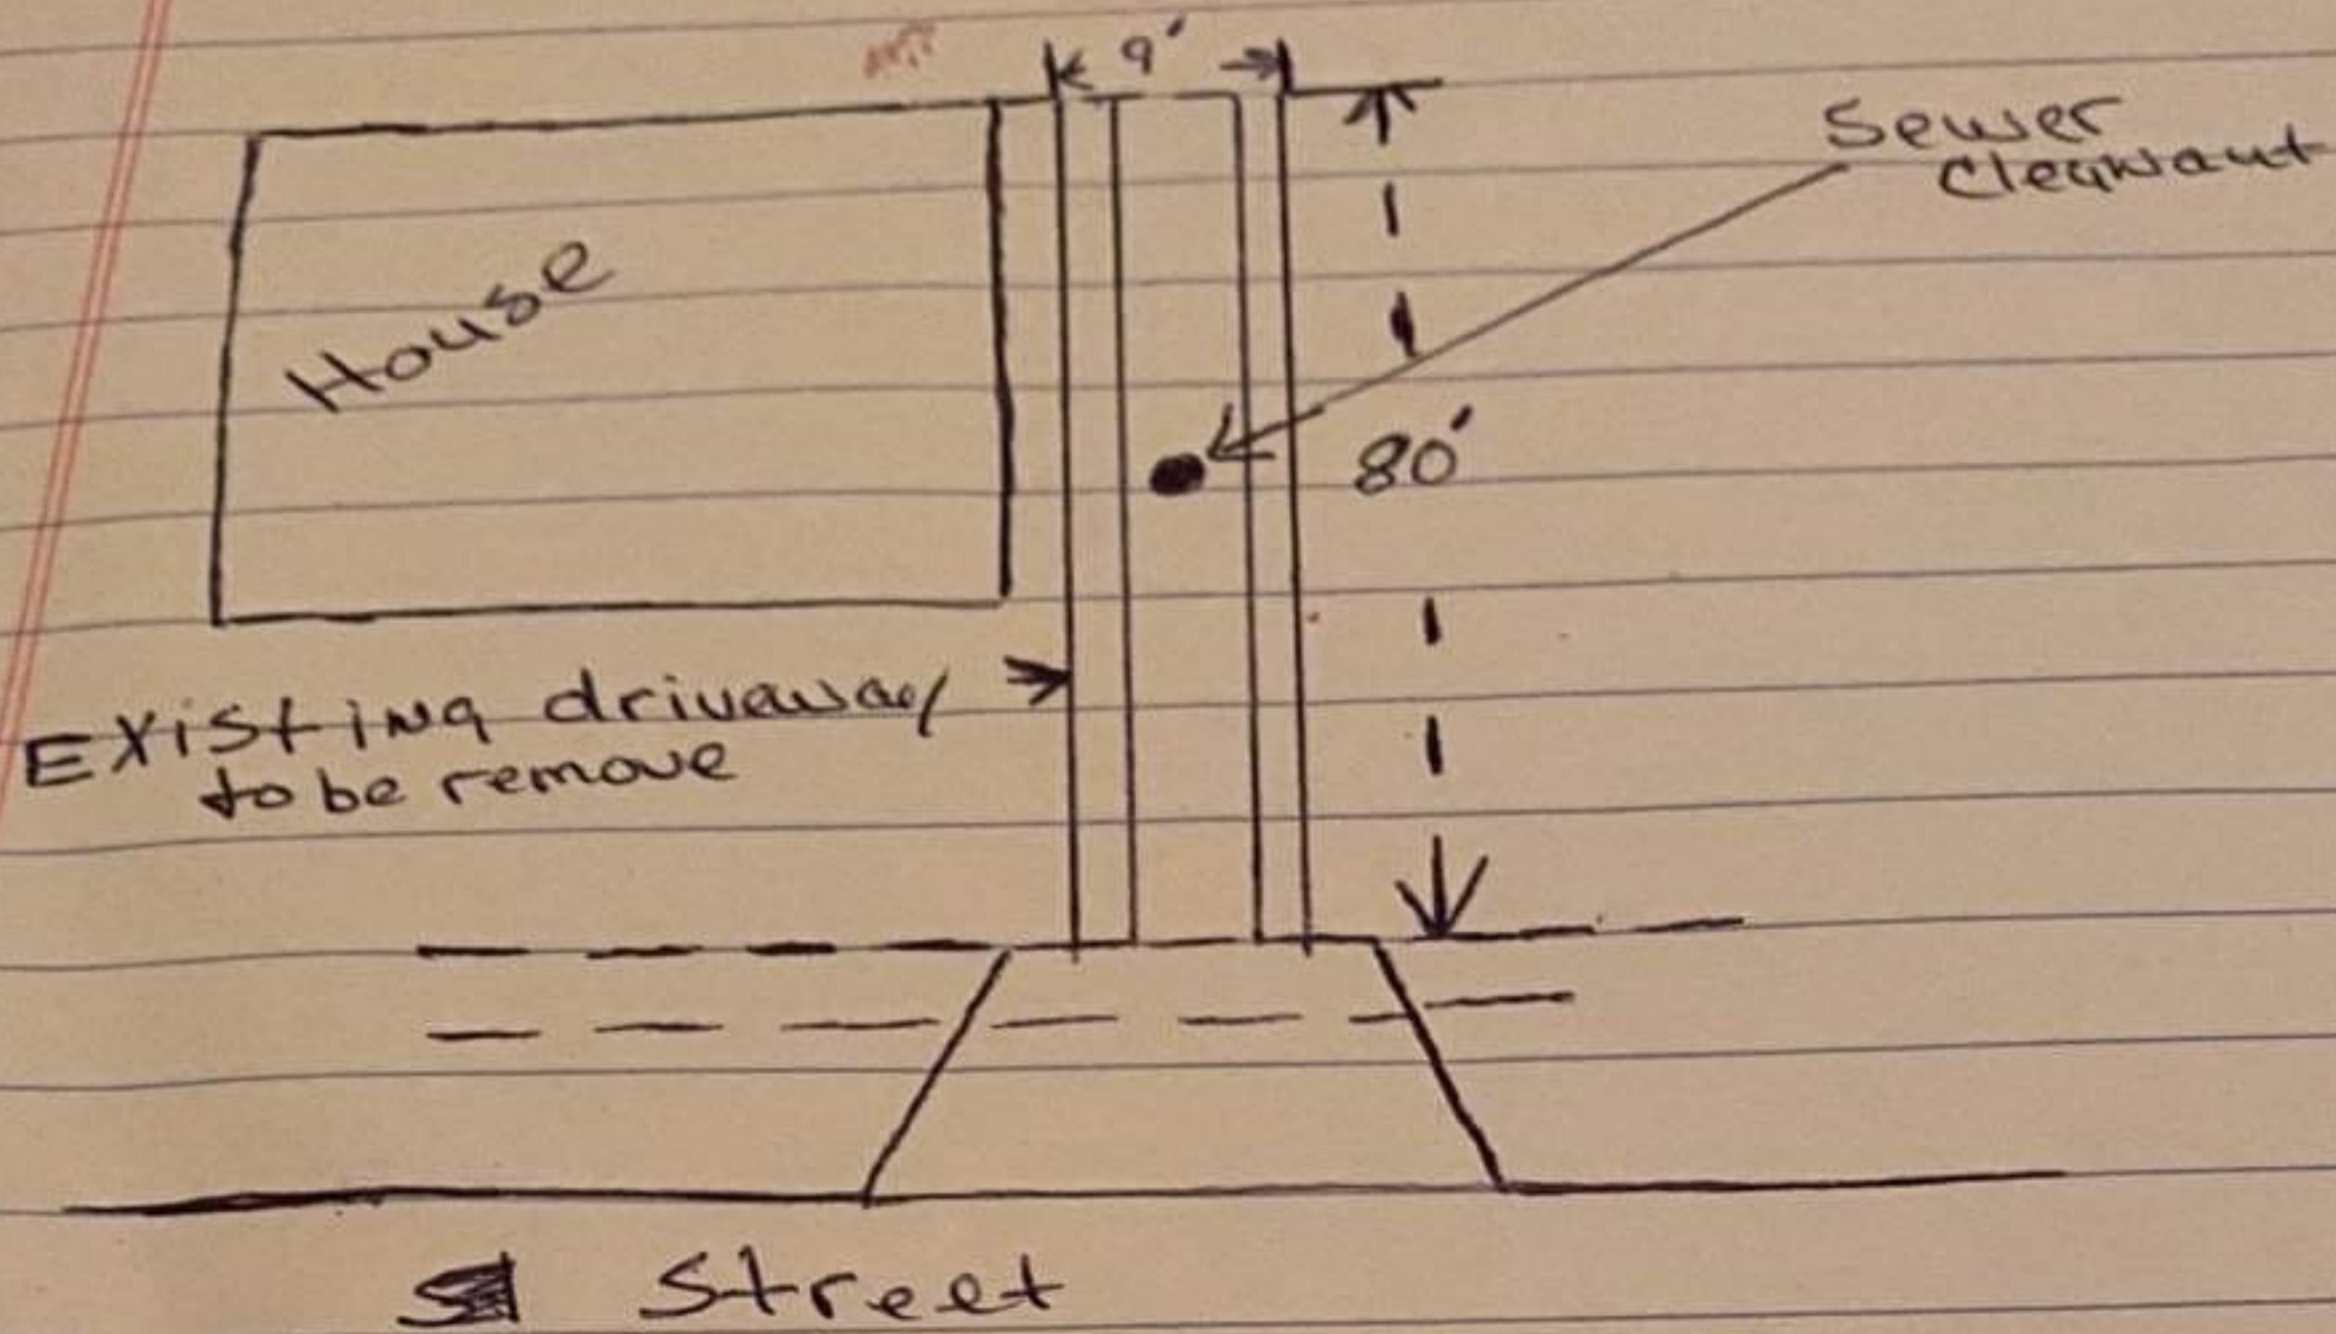 9'
Sewer
Cleanout
House
80'
Existing driveway
to be remove
Street